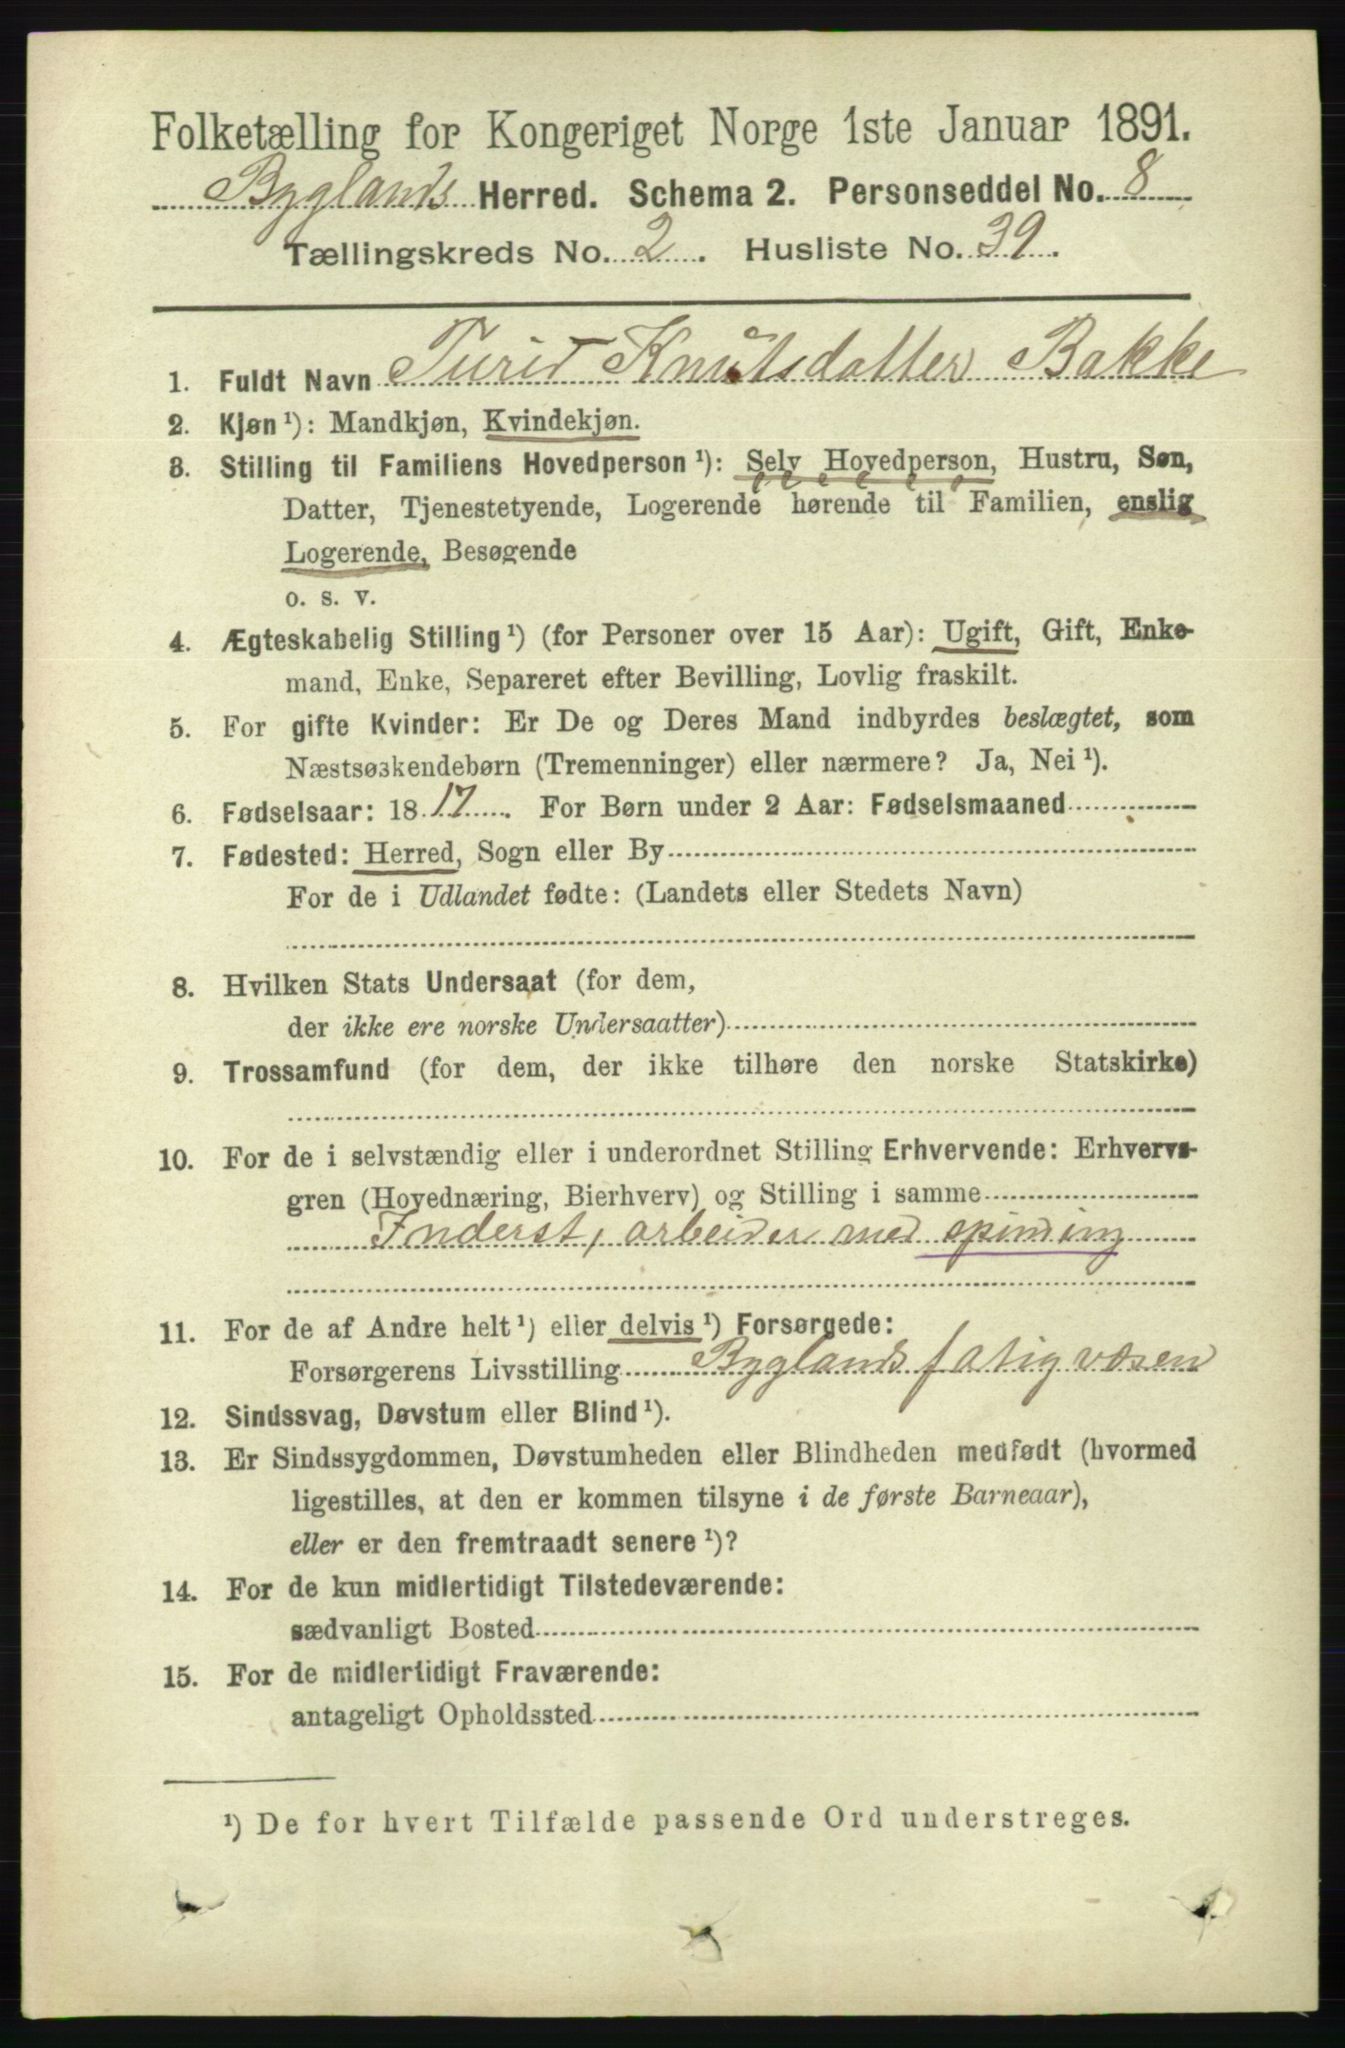 Folketælling for Kongeriget Norge 1ste Januar 1891.
Byglands Herred. Schema 2. Personseddel No. 8
Tællingskreds No. 2. Husliste No. 39.
1. Fuldt Navn Turid Knutsdatter Bakke
2. Kjøn ¹): Mandkjøn, Kvindekjøn.
3. Stilling til Familiens Hovedperson ¹): Selv Hovedperson, Hustru, Søn,
Datter, Tjenestetyende, Logerende hørende til Familien, enslig
Logerende, Besøgende
o. s. v.
4. Ægteskabelig Stilling ¹) (for Personer over 15 Aar): Ugift, Gift, Enke-
mand, Enke, Separeret efter Bevilling, Lovlig fraskilt.
5. For gifte Kvinder: Er De og Deres Mand indbyrdes beslægtet, som
Næstsøskendebørn (Tremenninger) eller nærmere? Ja, Nei ¹).
6. Fødselsaar: 1817. For Børn under 2 Aar: Fødselsmaaned
7. Fødested: Herred, Sogn eller By
For de i Udlandet fødte: (Landets eller Stedets Navn)
8. Hvilken Stats Undersaat (for dem,
der ikke ere norske Undersaatter)
9. Trossamfund (for dem, der ikke tilhøre den norske Statskirke)
10. For de i selvstændig eller i underordnet Stilling Erhvervende: Erhvervs-
gren (Hovednæring, Bierhverv) og Stilling i samme
Inderst, arbeider med spinding
11. For de af Andre helt ¹) eller delvis ¹) Forsørgede:
Forsørgerens Livsstilling Byglands fatigvæsen
12. Sindssvag, Døvstum eller Blind ¹).
13. Er Sindssygdommen, Døvstumheden eller Blindheden medfødt (hvormed
ligestilles, at den er kommen tilsyne i de første Barneaar),
eller er den fremtraadt senere ¹)?
14. For de kun midlertidigt Tilstedeværende:
sædvanligt Bosted
15. For de midlertidigt Fraværende:
antageligt Opholdssted
¹) De for hvert Tilfælde passende Ord understreges.